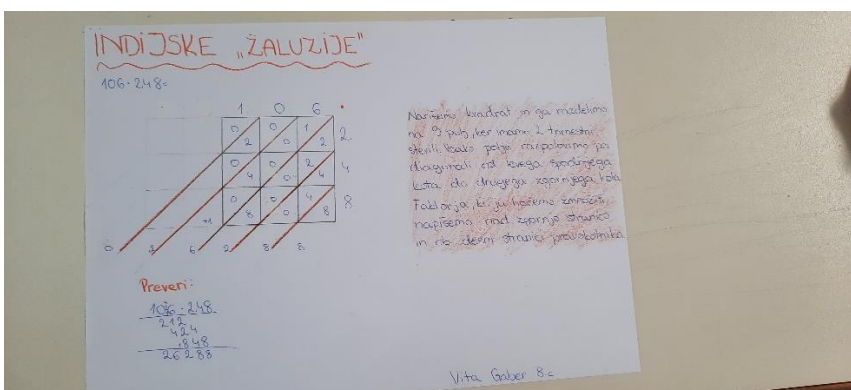 INDIJSKE „ŽALUZIJE"
106·248=
1 0 6
0 0 1 2
2 0 2
0 0 2 4
4 0 4
0 0 4 8
+1 8 0 8
0 2 6 2 8 8
Narišemo kvadrat in ga razdelimo
na 9 polj, ker imamo 2 trimestni
števili. Vsako polje razpolovimo po
diagonali od levega spodnjega
kota do drugega zgornjega kota.
Faktorja, ki ju hočemo zmnožiti,
napišemo nad zgornjo stranico
in ob desni stranici pravokotnika.
Preveri:
106·248
212
424
848
26288
Vita Gaber 8.c